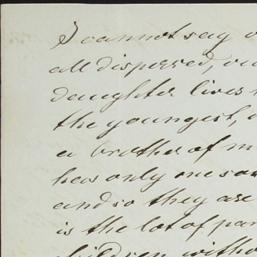 I cannot say
all dispersed,
daughter lives
the youngest,
a brother of m
has only one son
and so they are
is the lot of par
children witho